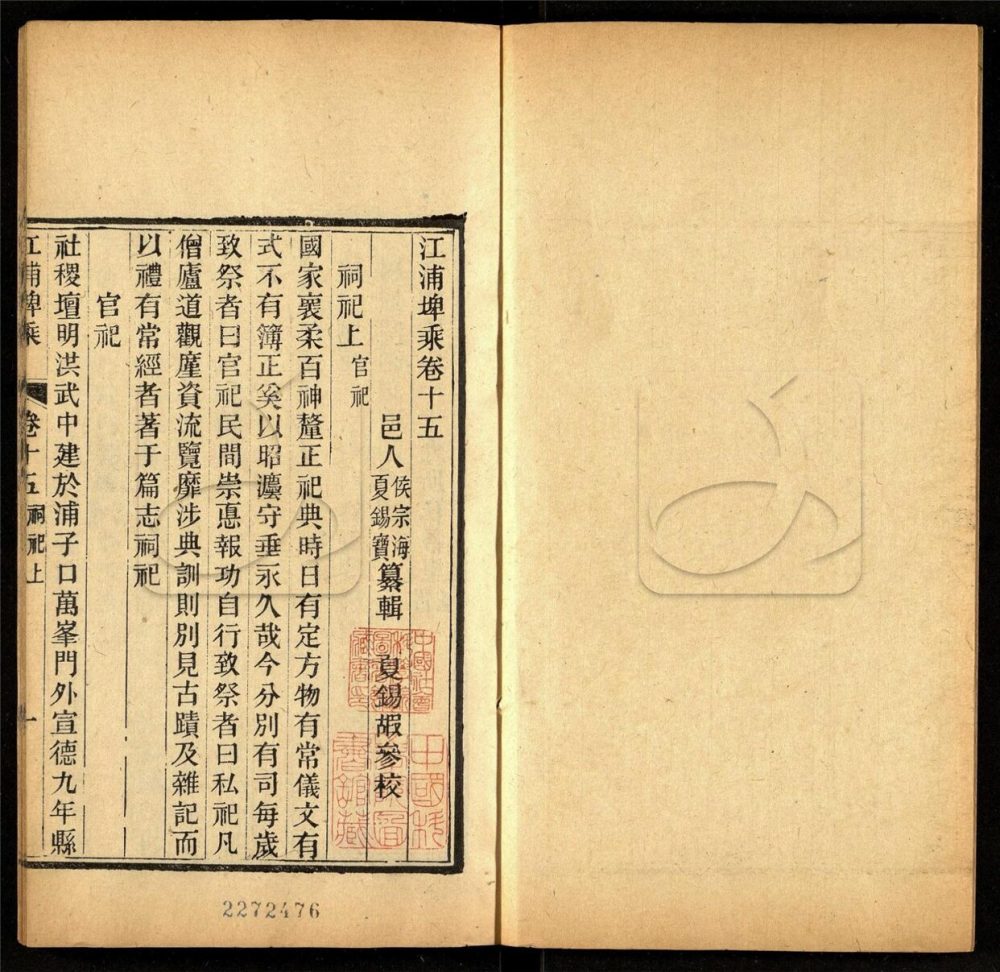 江浦埤乘卷十五
邑人侯宗海夏錫寶纂輯 夏錫嘏參校
祠祀上官祀
國家襃柔百神釐正祀典時日有定方物有常儀文有
式不有簿正奚以昭灋守垂永久哉今分別有司每歲
致祭者曰官祀民間崇悳報功自行致祭者曰私祀凡
僧廬道觀廑資流覽靡涉典訓則別見古蹟及雜記而
以禮有常經者著于篇志祠祀
官祀
社稷壇明洪武中建於浦子口萬峯門外宣德九年縣
江浦埤乘 卷十五祠祀上 一
2272476